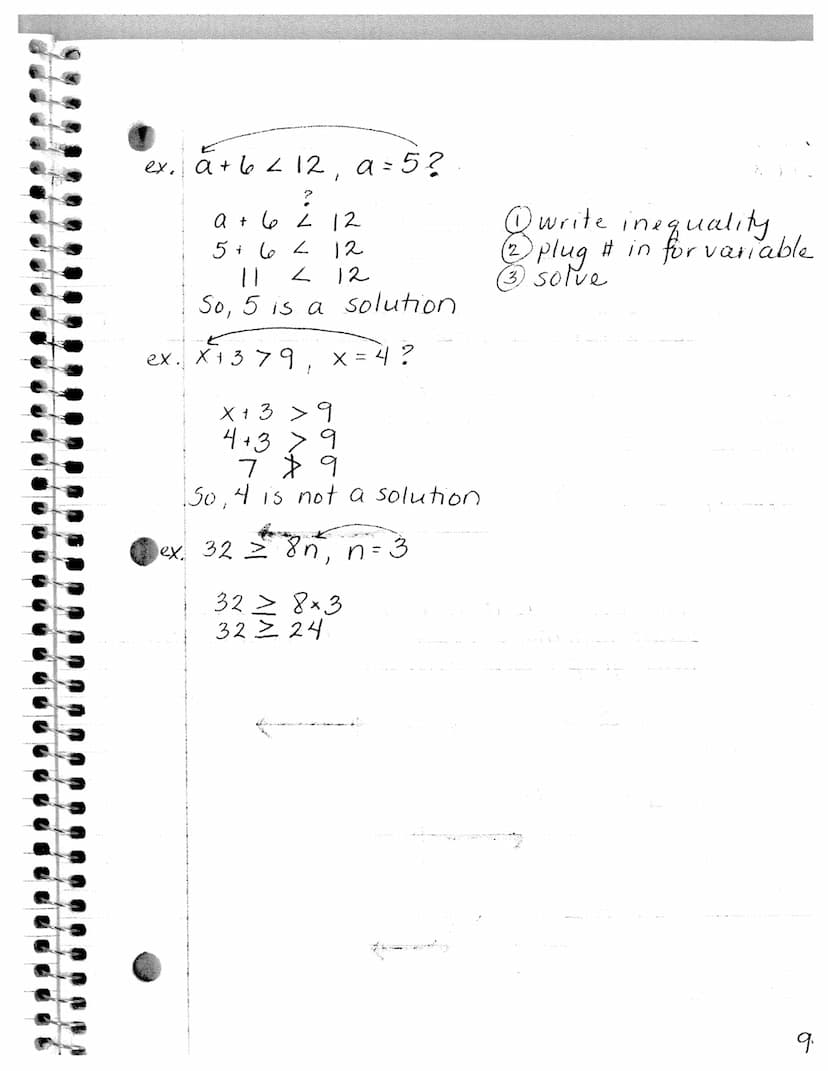 ex. a + 6 < 12, a = 5?
?
a + 6 < 12
5 + 6 < 12
11 < 12
So, 5 is a solution
① write inequality
② plug # in for variable
③ solve
ex. x + 3 > 9, x = 4?
x + 3 > 9
4 + 3 > 9
7 ≯ 9
So, 4 is not a solution
ex. 32 ≥ 8n, n = 3
32 ≥ 8 × 3
32 ≥ 24
9